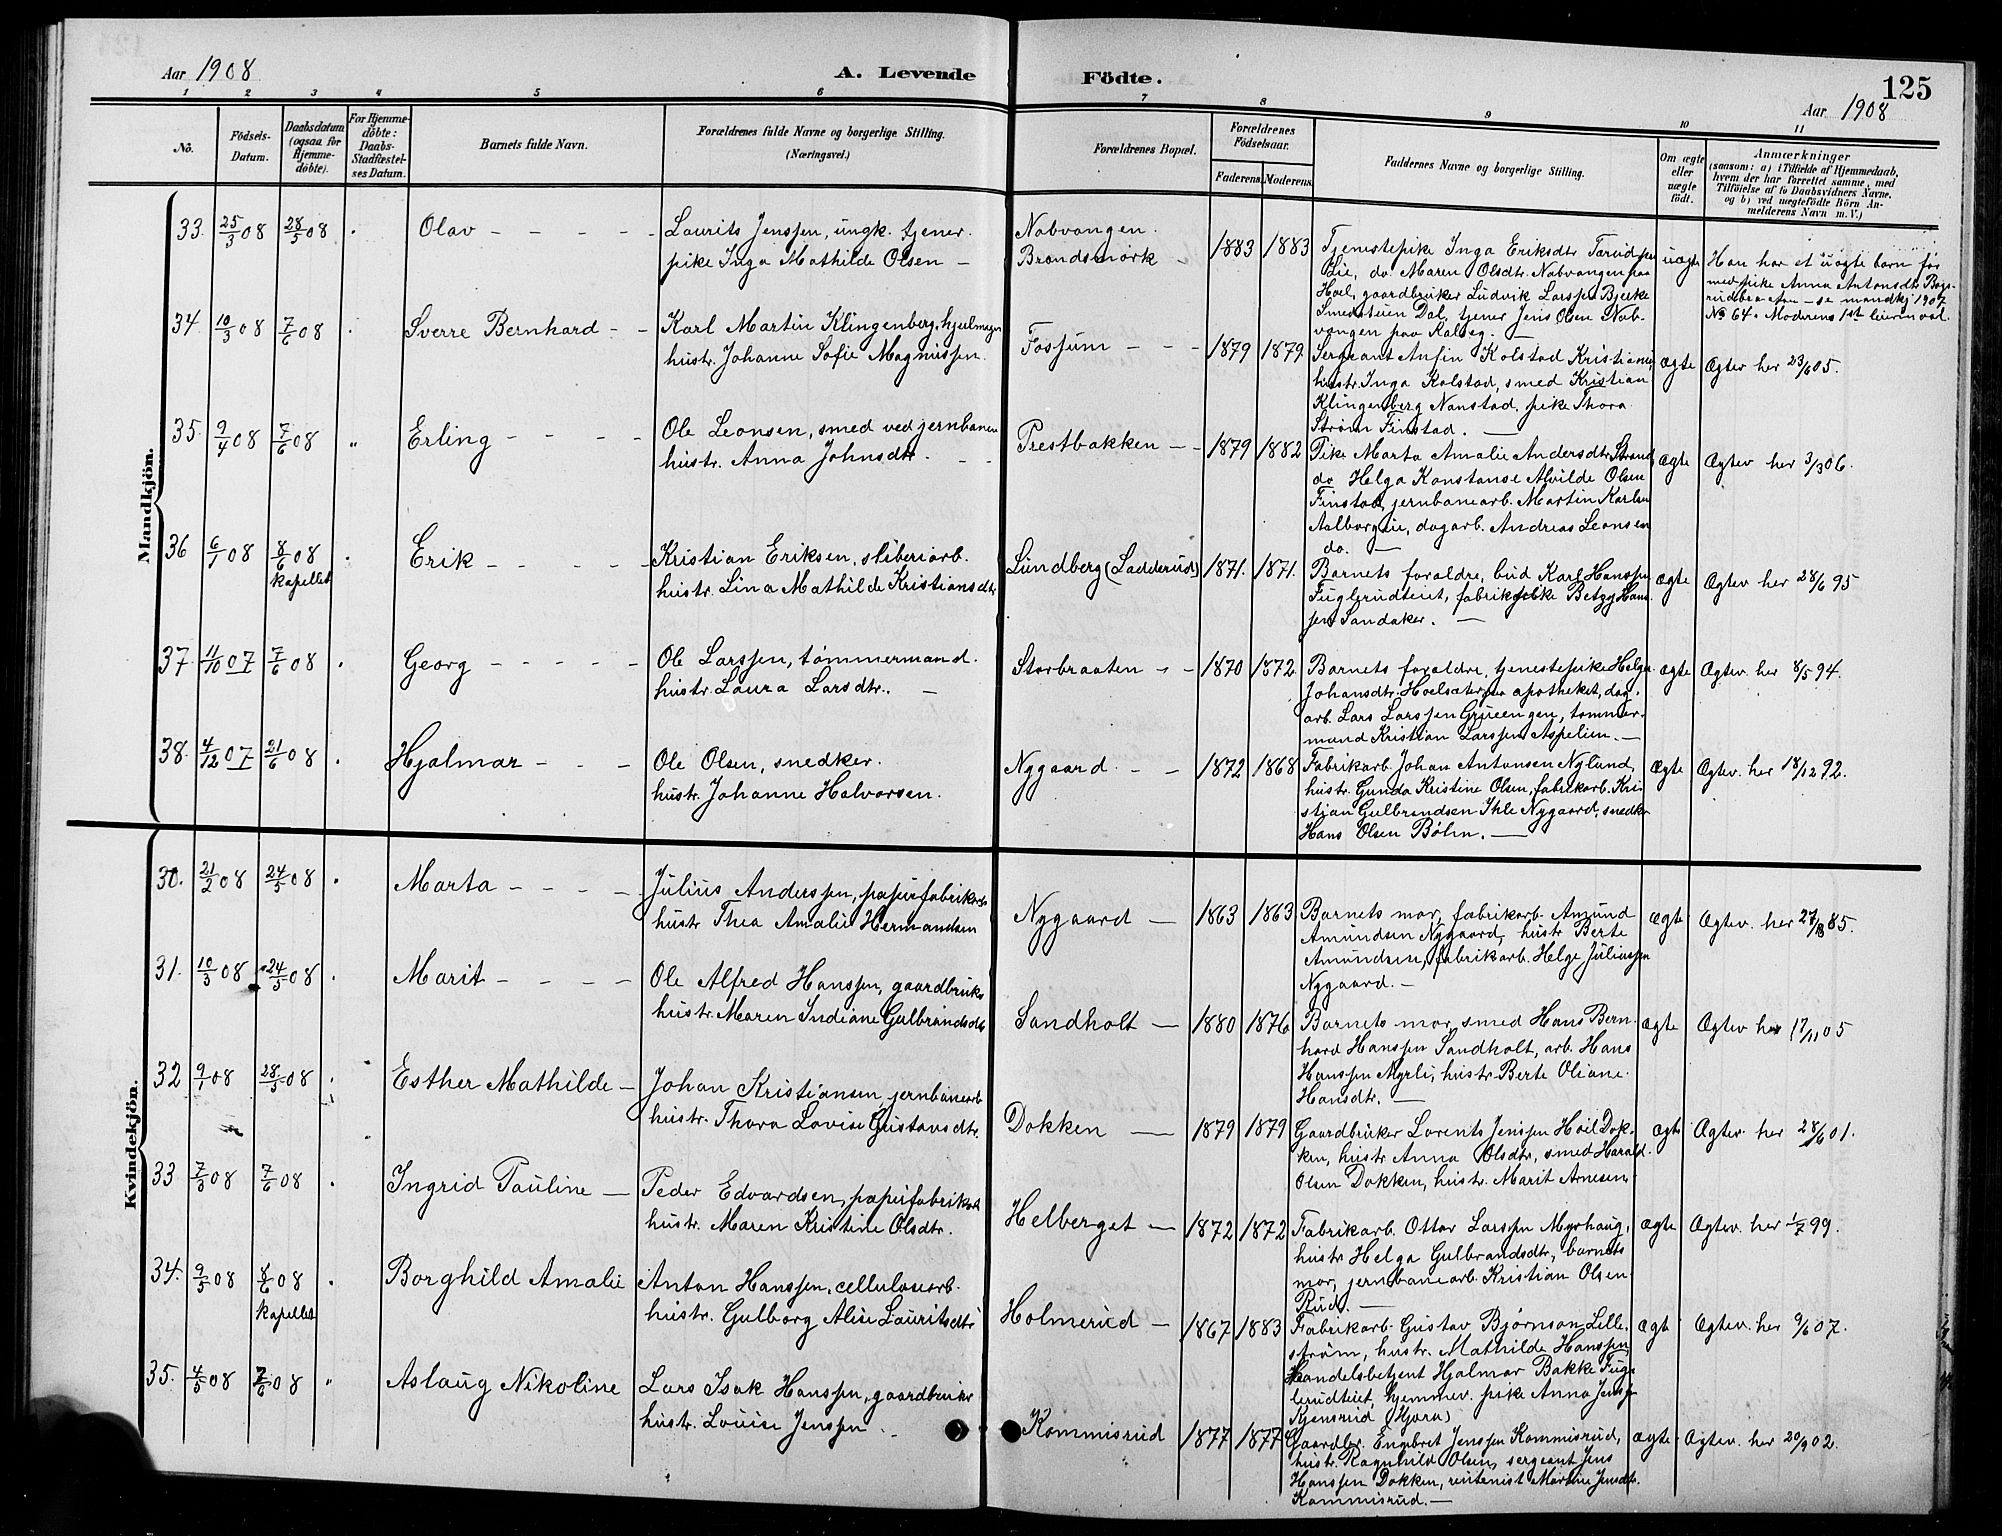 Aar 1908
A. Levende
Födte.
125
Aar 1908
1 2 3 4 5 6 7 8 9 10 11
No.
Födsels-
Datum.
Daabsdatum
(ogsaa for
Hjemme-
döbte).
For Hjemme-
döbte:
Daabs-
Stadfæstel-
ses Datum.
Barnets fulde Navn.
Forældrenes fulde Navne og borgerlige Stilling.
(Næringsvei.)
Forældrenes Bopæl.
Forældrenes
Födselsaar.
Faderens. Moderens.
Faddernes Navne og borgerlige Stilling.
Om ægte
eller
uægte
födt.
Anmærkninger
(saasom: a) i Tilfælde af Hjemmedaab,
hvem der har forrettet samme, med
Tilföielse af to Daabsvidners Navne,
og b) ved uegtefödte Börn An-
melderens Navn m. V.)
Mandkjön.
33. 25/3 08 28/5 08 Olav
Laurits Jenssen, ungk. tjener.
pike Inga Mathilde Olsen
Nabvangen.
Brandsmørk
1883 1883
Tjenestepike Inga Eriksdtr Tarud paa
Lie, do Maren Olsdtr. Nabvangen paa
Hoel, gaardbruker Ludvik Larssen Bjerke
Smedstuen Dal, tjener Jens Olsen Nab-
vangen paa
uægte
Han har et uægte barn før
med pike Anna Antonsdtr
se mandkj 1907
No 64. Moderens 1st leiermaal.
34. 10/3 08 7/6 08 Sverre Bernhard
Karl Martin Klingenberg, hjulmagr
hustr. Johanne Sofie Magnussen.
Fossum
1879 1879.
Sergeant Anfin Kolstad Kristiania,
hustr. Inga Kolstad, smed Kristian
Klingenberg Nanstad, pike Thora
Strøm Finstad.
ægte
Ægtev her 23/6 05.
35. 9/4 08 7/6 08 " Erling
Ole Leonsen, smed ved jernbanen
hustr. Anna Johnsdtr.
Prestbakken
1879 1882
Pike Marta Amalie Andersdtr. Strand
do Helga Konstanse Alvilde Olsen
Finstad, jernbanearb. Martin Karlsen
Aalborgeie, dagarb. Andreas Leonsen
do.
ægte
Ægtev her 3/3 06.
36 6/1 08 8/6 08
kapellet
Erik
Kristian Eriksen, sliberiarb.
hustr. Lina Mathilde Kristiansdtr
Lundberg (Ladderud)
1871. 1871.
Barnets foraldre, bud Karl Hanssen
Fuglerudteiet, fabrikpike Betzy Hans-
sen Sandaker.
ægte
Ægtev her 28/6 95
37 11/10 07 7/6 08 Georg
Ole Larssen, tømmermand.
hustr. Laura Larsdtr.
Storbraaten
1870 1872
Barnets foraldre, tjenestepike Helga
Johansdtr. Hoelsæter paa apotheket, dag-
arb. Lars Larssen Grueengen, tømmer-
mand Kristian Larssen Aspelien.
ægte
Ægtev. her 8/5 94.
38. 4/12 07 21/6 08 Hjalmar
Ole Olsen, snedker.
hustr. Johanne Halvorsen.
Nygaard
1872 1868
Fabrikarb. Johan Antonsen Nylund,
hustr. Gunda Kristine Olsen, fabrikarb. Kri-
stian Gulbrandsen Ihle Nygaard, snedker
Hans Olsen Bøhn.
ægte
Ægtev. her 18/12 92.
Kvindekjön.
30. 21/2 08 24/5 08 Marta
Julius Anderssen, papirfabrikarb
hustr Thea Amalie Hermandsen
Nygaard
1863 1863
Barnets mor, fabrikarb. Amund
Amundsen Nygaard, hustr Berte
Amundsen, fabrikarb. Helge Juliussen
Nygaard.
ægte
Ægtev. her 27/ 85.
31. 10/3 08 24/5 08 Marit
Ole Alfred Hanssen, gaardbruker
hustr. Maren Indiane Gulbrandsdtr
Sandholt
1880 1876
Barnets mor, smed Hans Bern-
hard Hanssen Sandholt, arb. Hans
Hanssen Myrli, hustr. Berte Oliane
Hansdtr.
ægte
Ægtev her 17/11 05
32 9/1 08 28/5 08 Esther Mathilde
Johan Kristiansen, jernbanearb
hustr. Thora Lovise Gustavsdtr.
Dokken
1879 1879
Gaardbruker Lorents Jenssen Hoel Dok-
ken, hustr Anna Olsdtr, smed Harald
Olsen Dokken, hustr. Marit Arnesen
ægte
Ægtev. her 28/6 01.
33 7/3 08 7/6 08 Ingrid Pauline
Peder Edvardsen, papirfabrikarb
hustr. Maren Kristine Olsdtr.
Helberget
1872 1872
Fabrikarb. Ottar Larssen Myrhaug,
hustr. Helga Gulbrandsdtr, barnets
mor, jernbanearb. Kristian Olsen
Rud.
ægte
Ægtev. her 1/7 99.
34. 9/5 08 8/6 08
kapellet
Borghild Amalie
Anton Hanssen, cellulosearb.
hustr. Gulborg Alise Lauritsdtr
Holmerud
1867 1883
Fabrikarb. Gustav Bjørnson Lille-
strøm, hustr. Mathilde Hanssen,
Handelsbetjent Hjalmar Bakke Fug-
lerudteiet, hjemmev. pike Anna Jenss.
Kjensrud (Hjara)
ægt
Ægtev. her 9/6 07.
35. 4/5 08 7/6 08 " Aslaug Nikoline
Lars Isak Hanssen, gaardbruker
hustr. Louise Jenssen
Kommisrud
1877 1877
Gaardbr. Engebret Jenssen Kommisrud,
hustr. Ragnhild Olsen, sergeant Jens
Hanssen Dokken, rentenist Martine Jensdtr.
Kommisrud.
ægte
Ægtev. her 20/9 02.